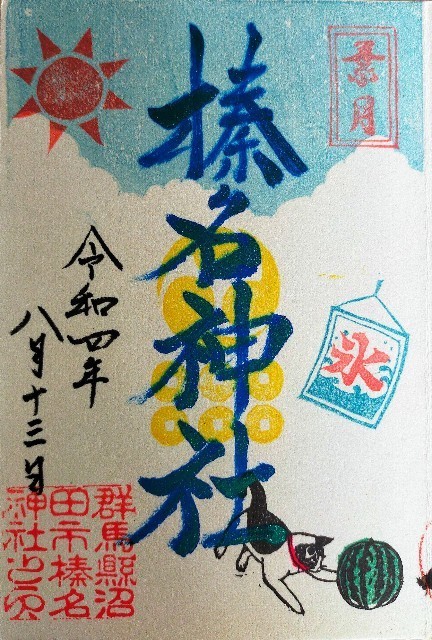 葉月
榛名神社
氷
令和四年
八月十三日
群馬縣沼
田市榛名
神社之印